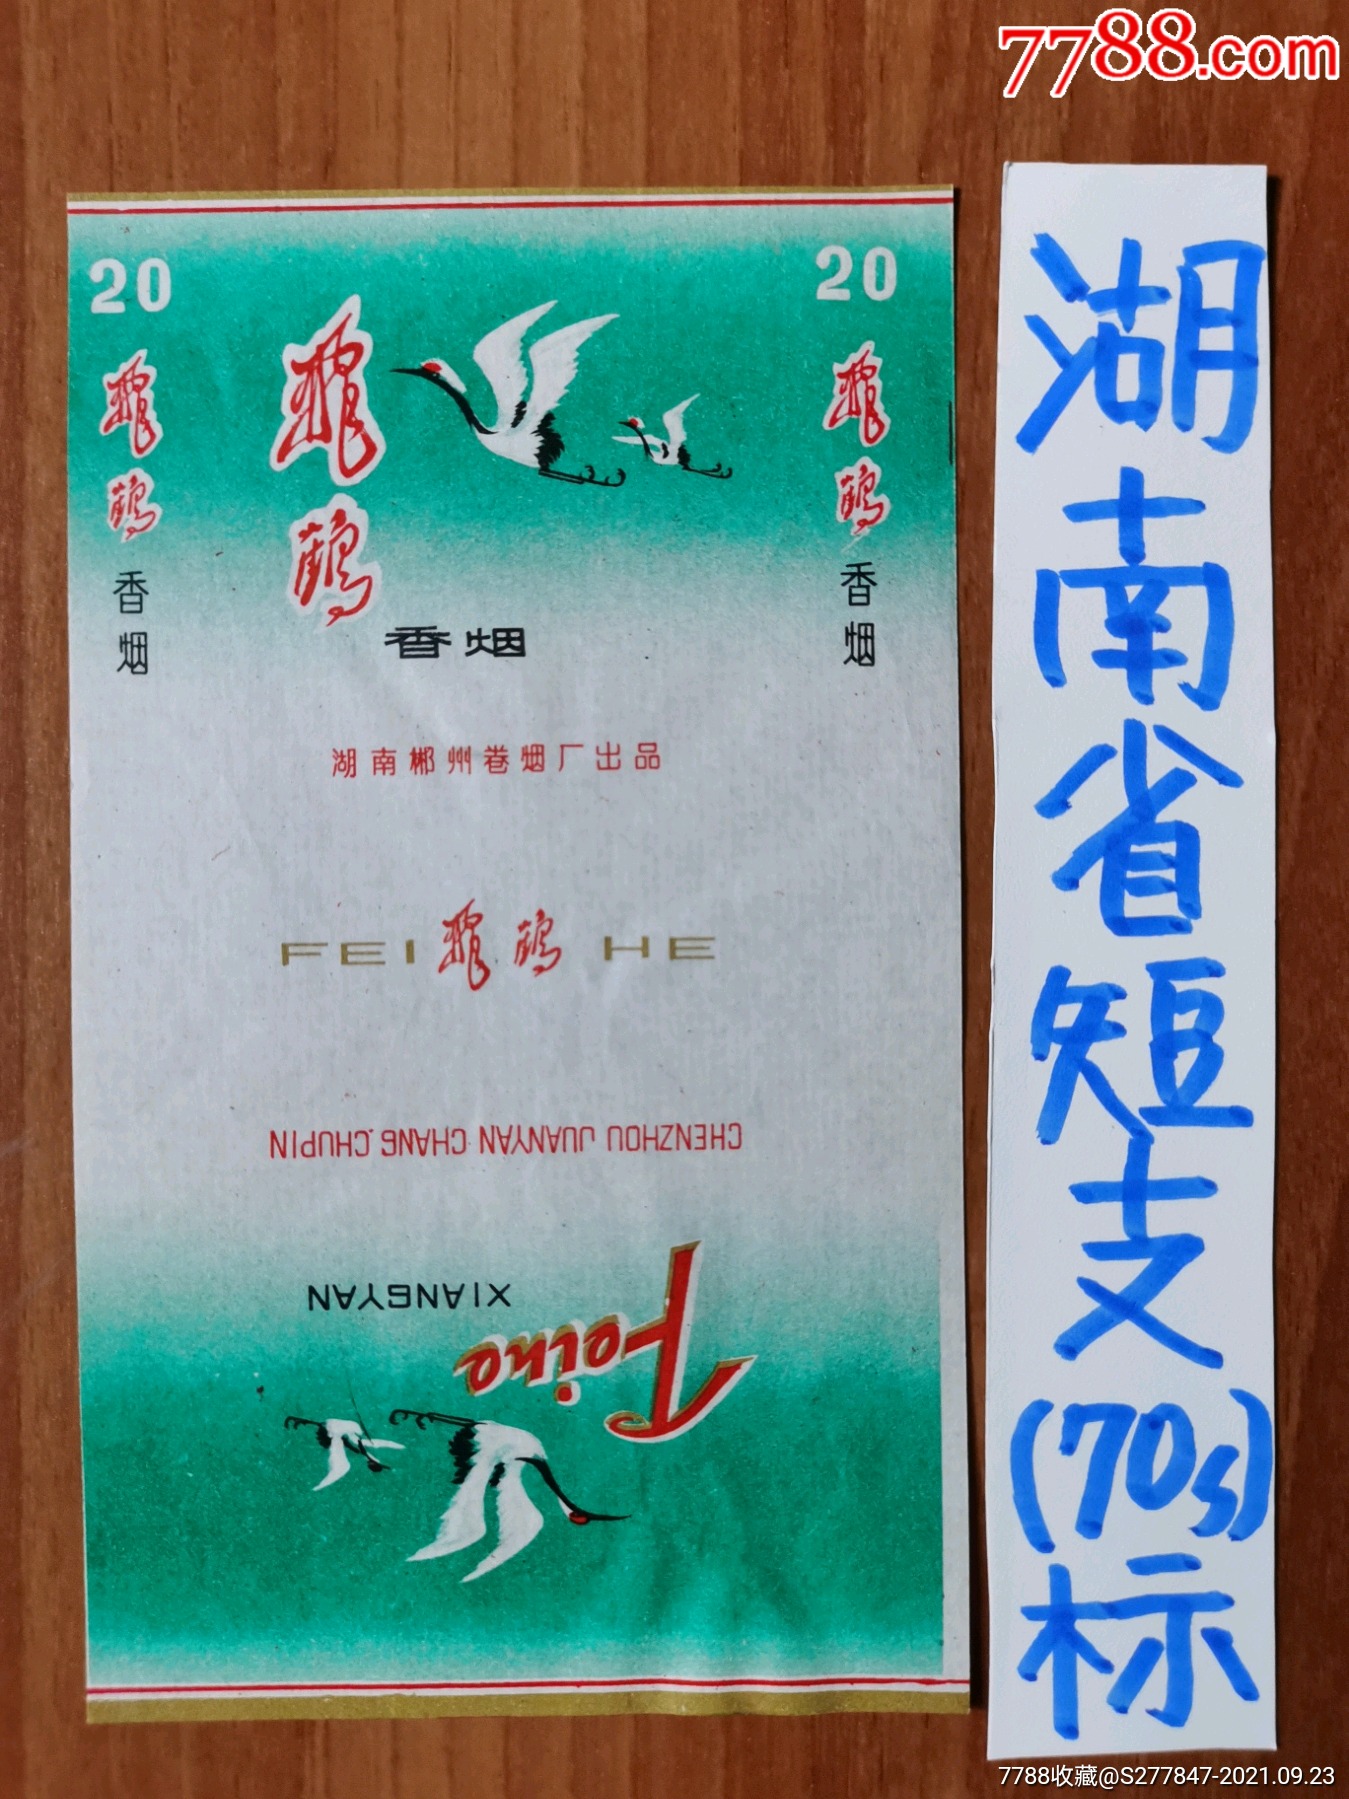 7788.com
20
20
飛鹤
香烟
飛鹤
香烟
飛鹤
香烟
湖南郴州卷烟厂出品
FEI 飛鹤 HE
CHENZHOU JUANYAN CHANG.CHUPIN
XIANGYAN
Feihe
湖南省短支(70s)标
7788收藏@S277847-2021.09.23